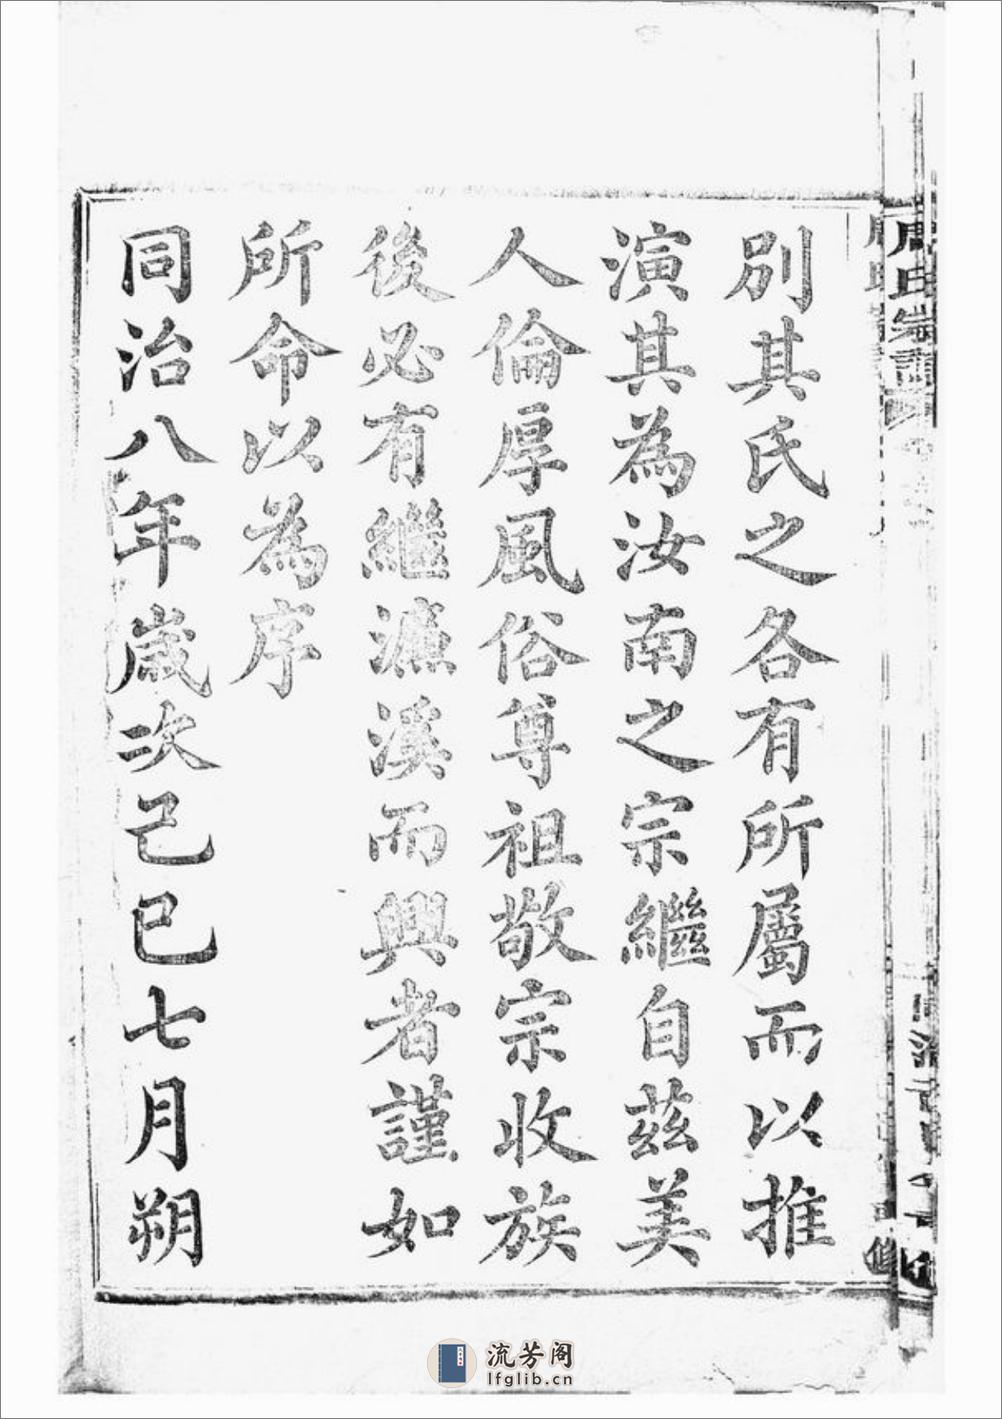 別其氏之各有所屬而以推
演其為汝南之宗繼自茲美
人倫厚風俗尊祖敬宗收族
後必有繼濂溪而興者謹如
所命以為序
同治八年歲次己巳七月朔
流芳阁
lfglib.cn